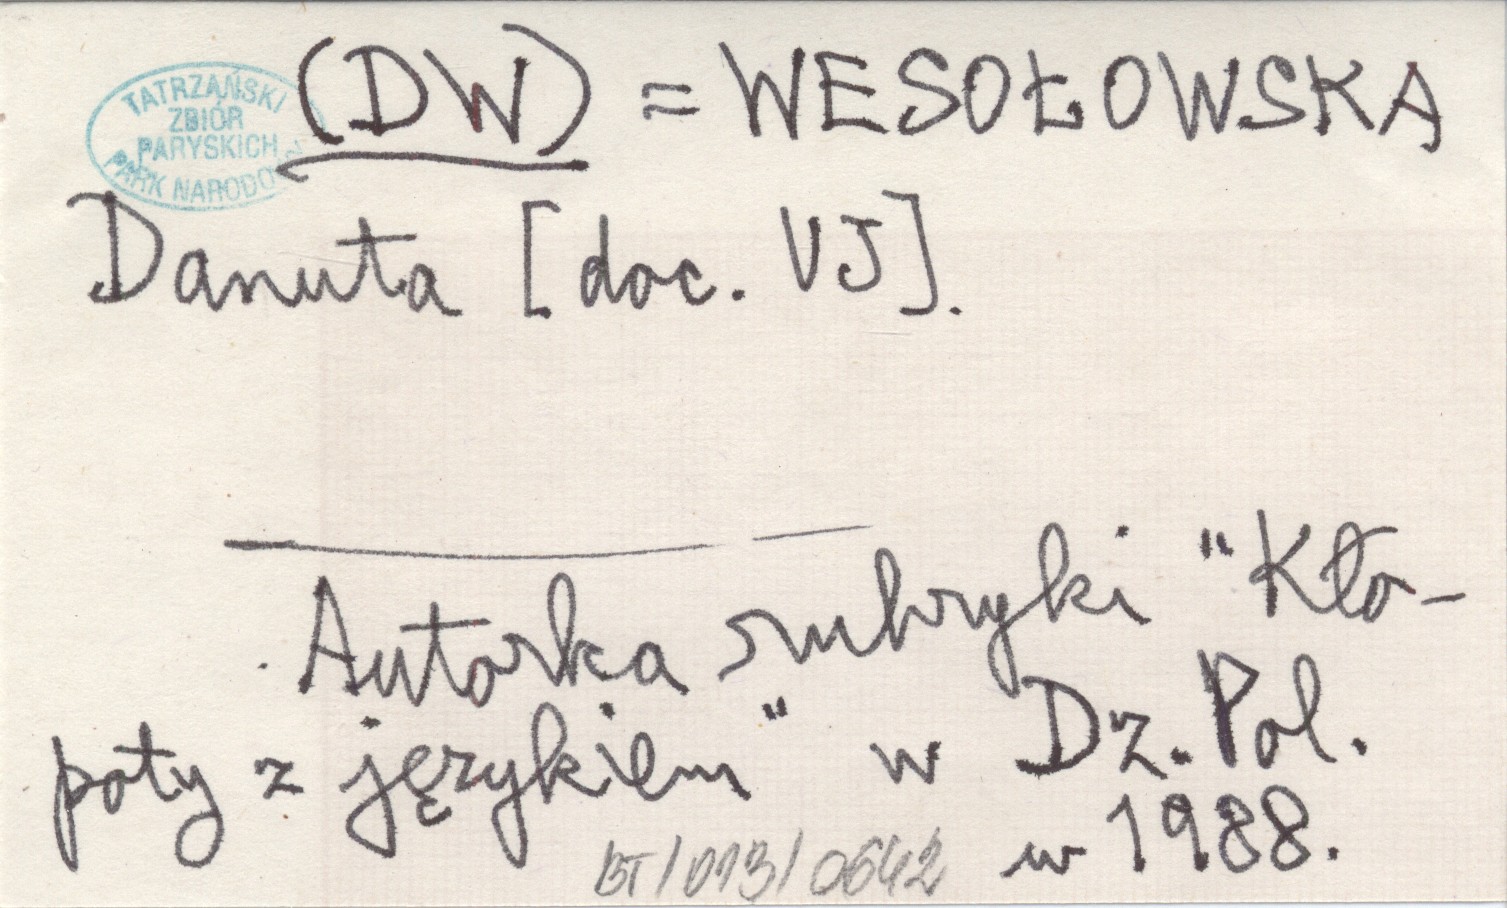 (DW) = WESOŁOWSKA
TATRZAŃSKI
ZBIÓR
PARYSKICH
PARK NARODO
Danuta [doc. UJ].
Autorka rubryki "Kło-
poty z językiem" w Dz. Pol.
w 1988.
BT/013/0642